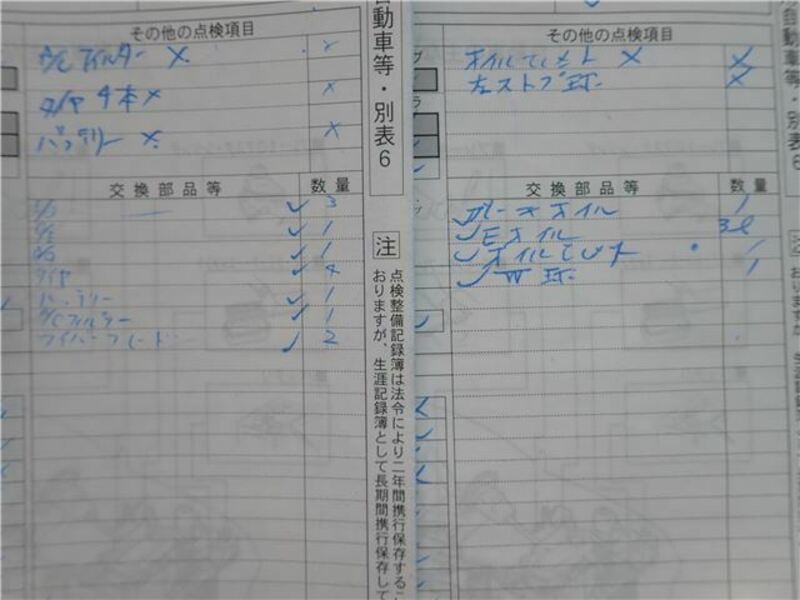 その他の点検項目
A/Cフィルター ×
×
タイヤ 4本 ×
×
バッテリー ×
×
交換部品等 数量
✓ 3
✓ 1
✓ 1
タイヤ ✓ 4
バッテリー ✓ 1
A/Cフィルター ✓ 1
ワイパーブレード ✓ 2
自動車等・別表6
注
点検整備記録簿は法令により二年間携行保存するこ
おりますが、生涯記録簿として長期間携行保存して
その他の点検項目
オイルエレメント × ×
左ストップ球 ×
交換部品等 数量
✓ ブレーキオイル 1
✓ Eオイル 3ℓ
✓ オイルエレメント 1
✓ W球 1
自動車等・別表6
注